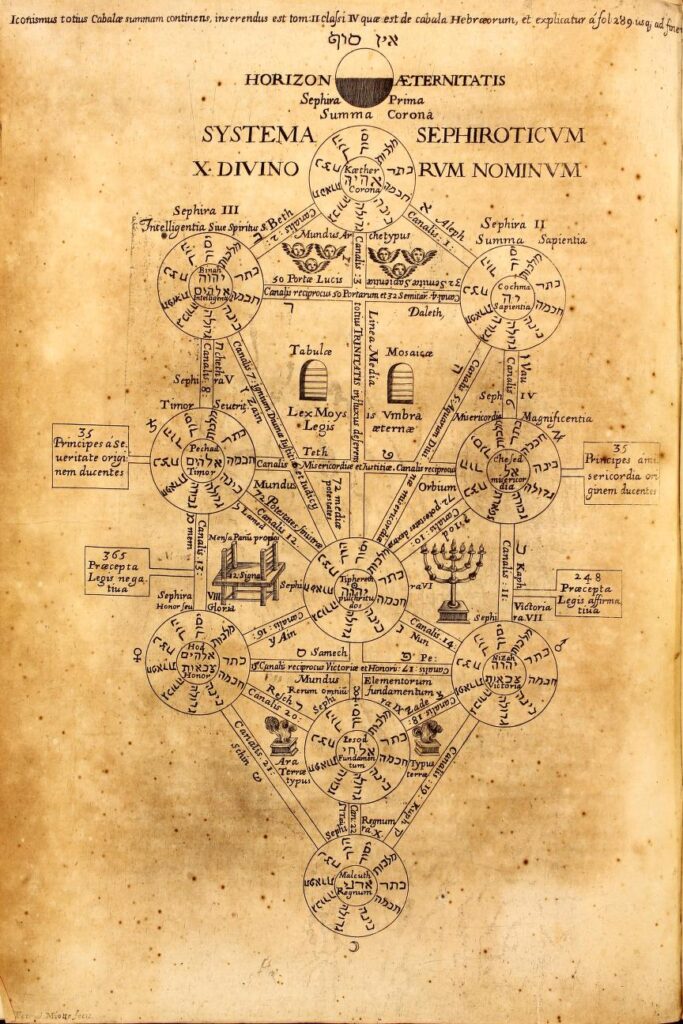 Iconismus totius Cabalæ summam continens, inserendus est tom: II classi IV quæ est de cabala Hebræorum, et explicatur á fol 289 usq; ad
אין סוף
HORIZON ÆTERNITATIS
Sephira Prima
Summa Corona
SYSTEMA SEPHIROTICVM
X DIVINO RVM NOMINVM
Kæther
אהיה
Corona
כתר
חכמה
בינה
גדולה
גבורה
תפארת
נצח
הוד
יסוד
מלכות
Sephira III
Intelligentia Siue Spiritus S.
Beth
Canalis: 2:
ב
א
Aleph
Canalis: 1:
Sephira II
Summa Sapientia
Mundus Ar chetypus
Canalis: 3
Binah
יהוה
אלהים
Intelligentia
Cochma
יה
Sapientia
50 Portæ Lucis
32 Semitæ Sapientiæ
Canalis reciprocus 50 Portarum et 32 Semitar:
Canalis 4
ד
Daleth,
totius TRINITATIS influxus deferens
Linea Media
Tabulæ Mosaicæ
Lex Moys is Vmbra
Legis æternæ
ח cheth
Canalis: 8:
Sephi ra V
Timor Seuerit:
Canalis 7:
ז Zain
ו Vau
Canalis 6
Seph IV
Misericordia
Magnificentia
Canalis 5
35
Principes a Se,
ueritate origi
nem ducentes
Pechad
אלהים
Timor
Chesed
אל
misericor
dia
35
Principes a mi
sericordia ori
ginem ducentes
Teth
ט
Canalis: 9 Misericordiæ et Iustitiæ. Canalis reciprocus
Mundus Orbium
72 mediæ
potestates
72 Potestates
ל Lamed
Canalis 12.
72 potestates
י Iod
Canalis: 10
מ mem
Canalis: 13:
365
Præcepta
Legis nega
tiua
Mensa Panũ propo
12 Signa
כ
Kaph
Canalis: 11:
248
Præcepta
Legis affirma
tiua
Sephi ra VI
Tiphereth
יהוה
pulchritu
dos
Sephira VIII
Honor seu Gloria
Victoria
Sephi ra VII
Canalis: 16:
ע Ain
נ Nun
Canalis 14:
♀
♂
Hod
אלהים
צבאות
Honor
Nizah
יהוה
צבאות
Victoria
ס Samech
פ Pe:
Canalis reciprocus Victoriæ et Honoris Canalis: 17:
Mundus Elementorum
Resch ר
Canalis 20:
Rerum omniũ fundamentum
Sephi ra IX
Zade צ
Canalis: 18:
Iesod
אל חי
Fundamen
tum
Ara
Terræ
typus
Typus
terræ
Canalis: 21:
Schin ש
Canalis: 19:
Kuph ק
ת Tau
Can: 22
Regnum
Sephi ra X
Malcuth
אדני
Regnum